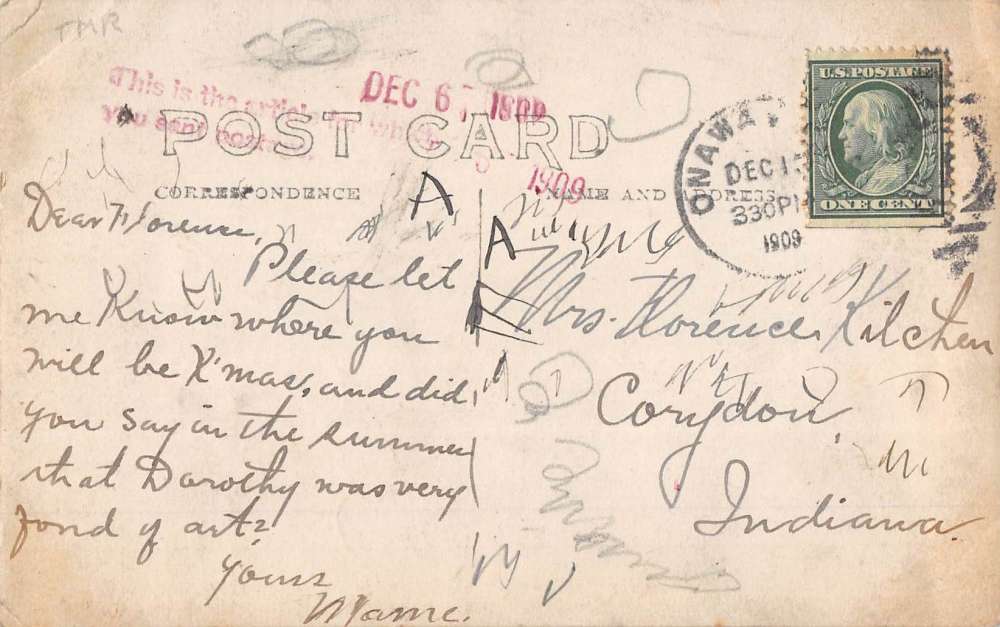 THR
This is the article for which
you sent postage.
DEC 6 1909
1909
POST CARD
CORRESPONDENCE
NAME AND ADDRESS
ONAWA
DEC 13
330PM
1909
U.S. POSTAGE
ONE CENT
Dear Florence,
Please let
me Know where you
will be X'mas, and did
you say in the summer
that Dorothy was very
fond of art?
Yours
Mame.
A
A
Mrs. Florence Kitchen
Corydon,
Indiana.